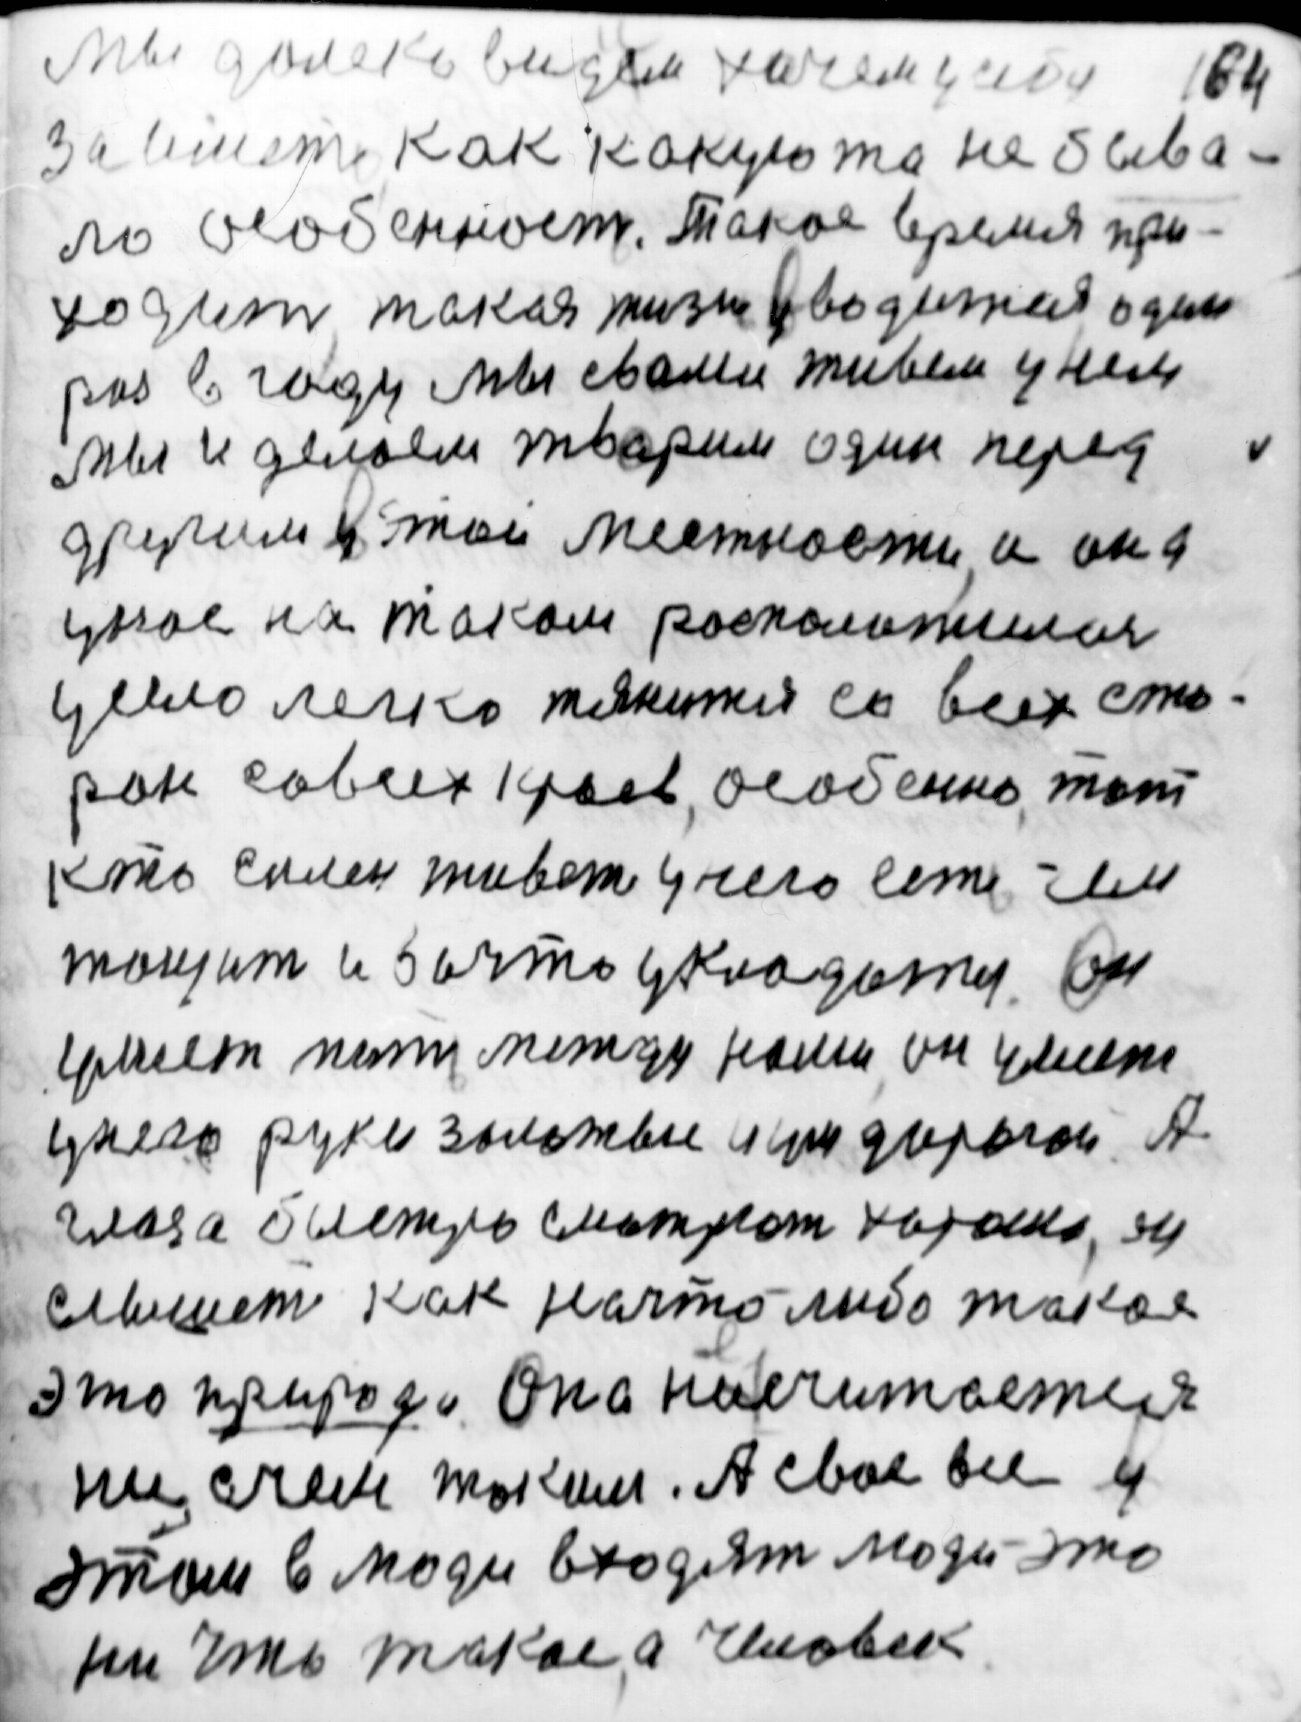 Мы далеко видем хочем у себя 164
Завимет, как какуюта не быва-
ло особенност. Такое время при-
ходит, такая жизн уводитсяя один
раз в году Мы свами живем у нем
Мы и делаем тварим один перед
другим у этой местности, и она
уное на таком росположилася
усело легко тянится со всех сто-
рон совсех краев, особенно, тот
кто силен живет, у него есте чем
тонуит и зачто укладатся. Он
умеет пить между нами, он умеет
у него руки золотые и ум дорогои. А
глаза быстро смотрят хорошо, ну
слышет как начто либо такое
это природа. Она несчитается
не, счем таким. А свое все у
этом в моди входят моди-это
ни что такое, а человек